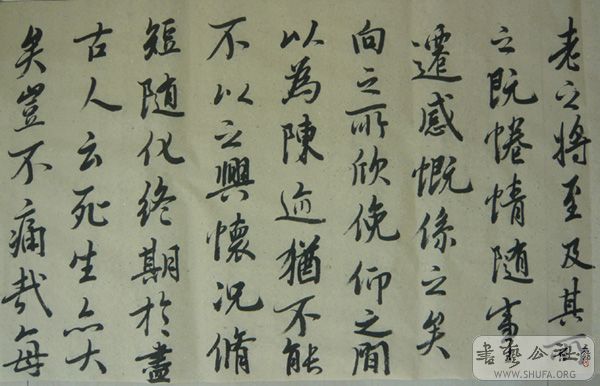 老之将至及其所
之既惓情随事
遷感慨係之矣
向之所欣俛仰之間
以為陳迹猶不能
不以之興懷況脩
短随化終期於盡
古人云死生亦大
矣豈不痛哉每
書藝公社
WWW.SHUFA.ORG